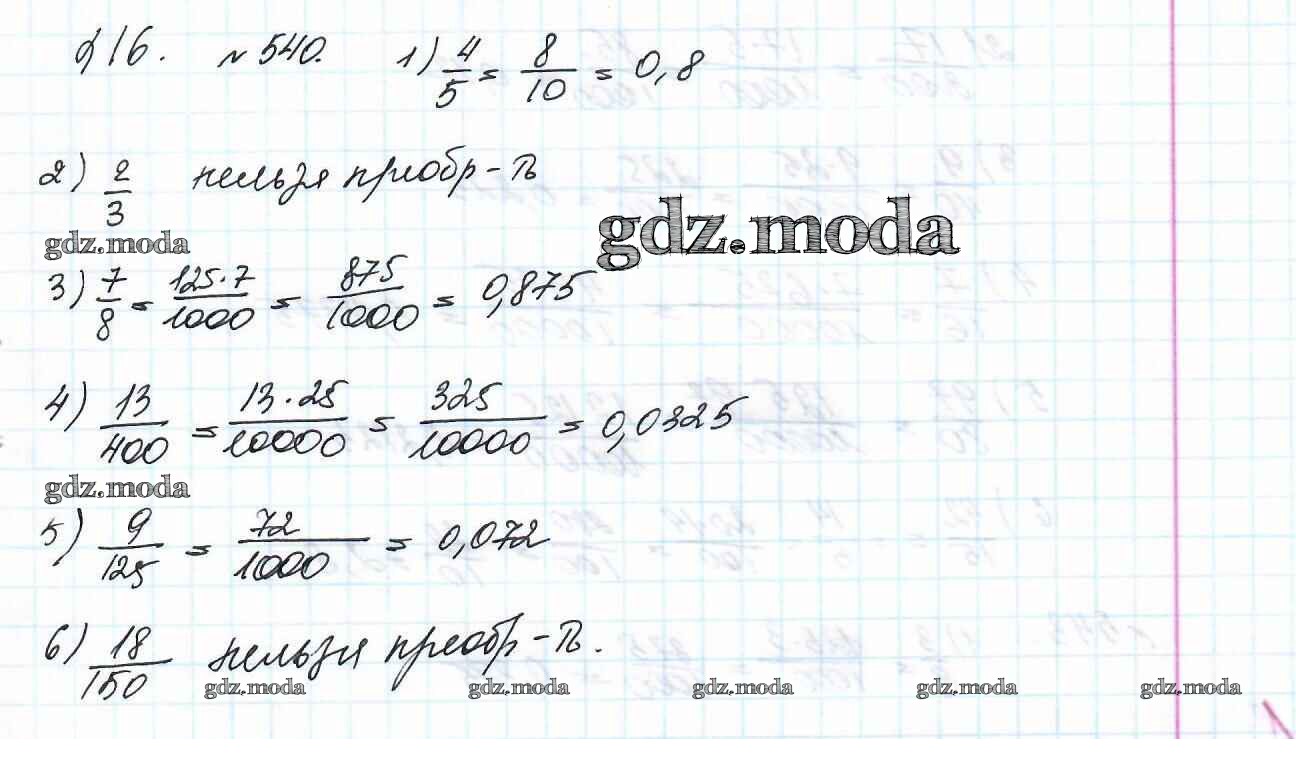 §16. № 540. 1) 4/5 = 8/10 = 0,8
2) 2/3 нельзя преобр-ть
gdz.moda
gdz.moda
3) 7/8 = 125·7/1000 = 875/1000 = 0,875
4) 13/400 = 13·25/10000 = 325/10000 = 0,0325
gdz.moda
5) 9/125 = 72/1000 = 0,072
6) 18/150 нельзя преобр-ть.
gdz.moda gdz.moda gdz.moda gdz.moda gdz.moda